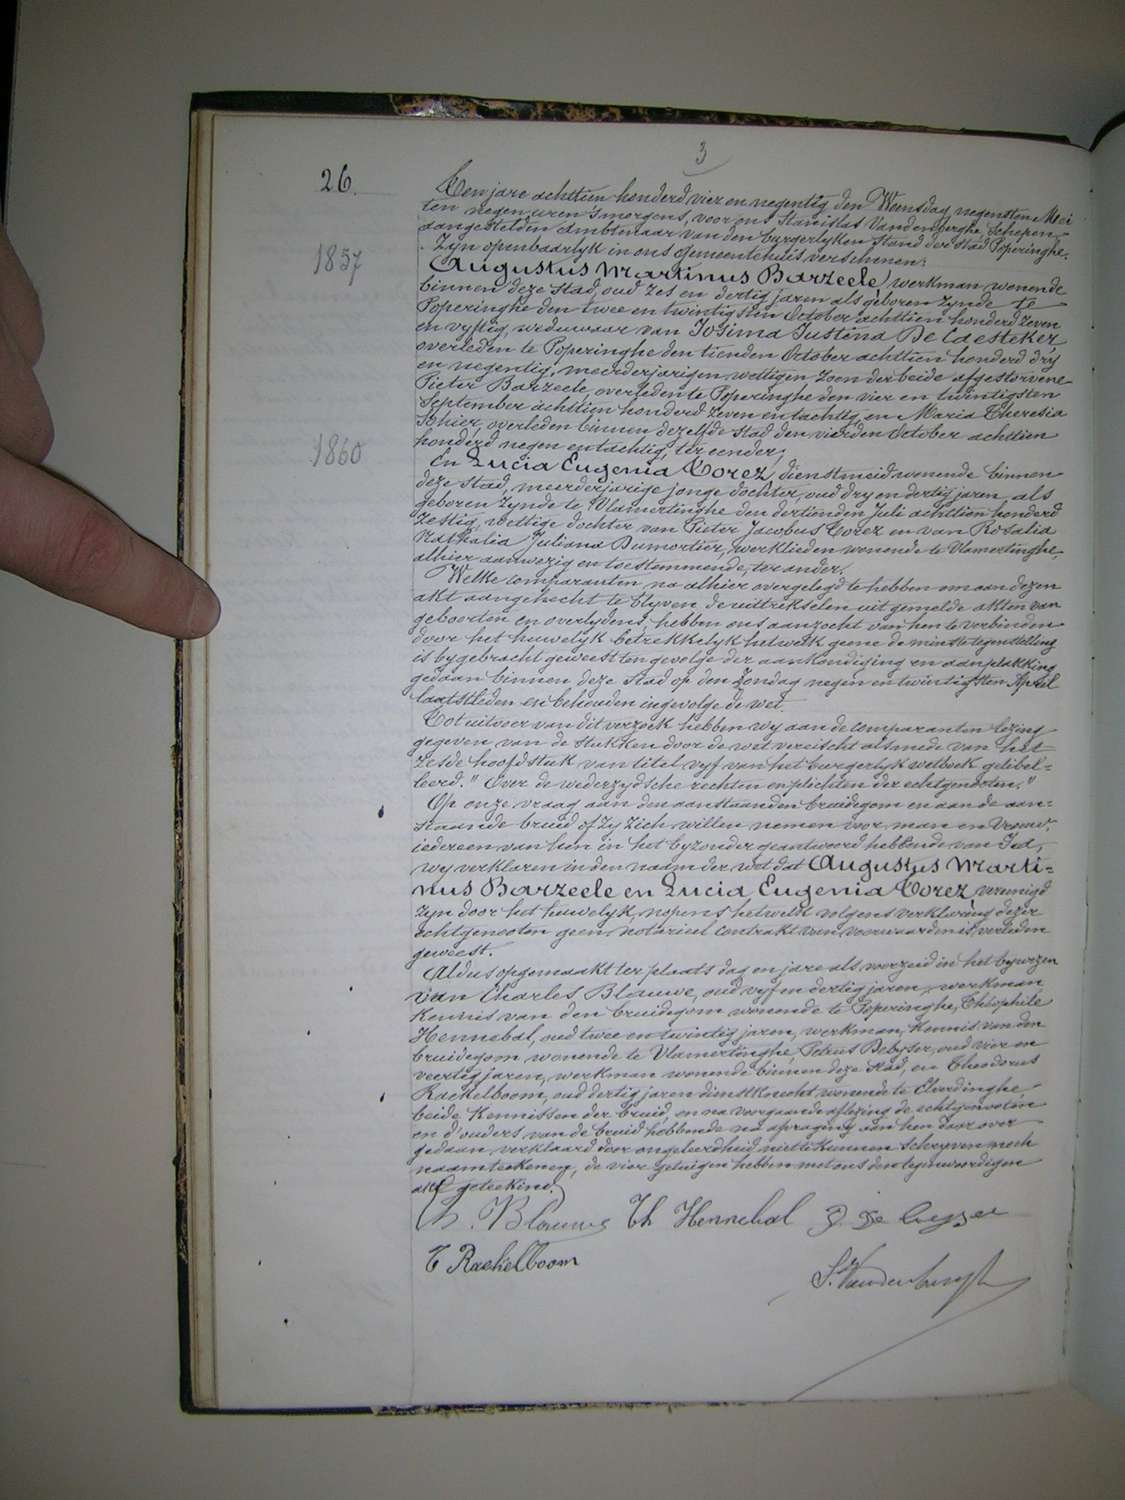 3
26
Ten jare achttien honderd vier en negentig den Woensdag negensten Mei
ten negen uren 's morgens, voor ons Stanislas Vandenberghe, Schepen
aangestelden Ambtenaar van den burgerlyken Stand der Stad Poperinghe.
Zyn openbaarlyk in ons gemeentehuis verschenen:
1857
Augustus Martinus Barzeele, werkman wonende
binnen deze stad, oud zes en dertig jaren als geboren zynde te
Poperinghe den twee en twintigsten October achttien honderd zeven
en vyftig, weduwaar van Josima Justina De Caesteker
overleden te Poperinghe den tienden October achttien honderd dry
en negentig, meerderjarigen wettigen zoon der beide afgestorvene
Pieter Barzeele, overleden te Poperinghe den vier en twintigsten
September achttien honderd zeven en tachtig en Maria Theresia
Schier, overleden binnen dezelfde stad den vierden October achttien
honderd negen en tachtig, ter eender;
1860
En Lucia Eugenia Torez, dienstmeid wonende binnen
deze stad, meerderjarige jonge dochter, oud dry en dertig jaren als
geboren zynde te Vlamertinghe den dertienden Juli achttien honderd
zestig, wettige dochter van Pieter Jacobus Torez en van Rosalia
Nathalia Juliana Dumortier, werklieden wonende te Vlamertinghe,
alhier aanwezig en toestemmende, ter ander.
Welke comparanten na alhier overgelegd te hebben om aan dezen
akt aangehecht te blyven de uittrekselen uit gemelde akten van
geboorten en overlydens, hebben ons aanzocht van hen te verbinden
door het huwelyk betrekkelyk hetwelk geene de minste tegenstelling
is bygebracht geweest ten gevolge der aankondiging en aanplakking
gedaan binnen deze stad op den Zondag negen en twintigsten April
laatstleden en behouden ingevolge de wet.
Tot uitvoer van dit verzoek hebben wy aan de comparanten lezing
gegeven van de stukken door de wet vereischt alsmede van het
zesde hoofdstuk van titel vyf van het burgerlyk wetboek getibel=
leerd. "Over de wederzydsche rechten en plichten der echtgenooten."
Op onze vraag aan den aanstaanden bruidegom en aan de aan=
staande bruid of zy zich willen nemen voor man en vrouw,
iedereen van hen in het byzonder geantwoord hebbende van Ja,
wy verklaren in den naam der wet dat Augustus Marti=
nus Barzeele en Lucia Eugenia Torez vereenigd
zyn door het huwelyk, nopens hetwelk volgens verklaring dezer
echtgenooten geen notarieel contrakt van voorwaarden is verleden
geweest.
Aldus opgemaakt ter plaats dag en jare als voorzeid in het bywezen
van Charles Blauwe, oud vyf en dertig jaren, werkman
kennis van den bruidegom wonende te Poperinghe, Théophile
Hennebal, oud twee en twintig jaren, werkman, kennis van den
bruidegom wonende te Vlamertinghe, Petrus Debyser, oud vier en
veertig jaren, werkman wonende binnen deze stad, en Theodorus
Rackelboom, oud dertig jaren dienstknecht wonende te Elverdinghe,
beide kennissen der bruid, en na voorgaande aflezing de echtgenooten
en d'ouders van de bruid hebbende na afvraging aan hen daar over
gedaan, verklaard door ongeleerdheid niet te kunnen schryven noch
naamteekenen, de vier getuigen hebben met ons den tegenwoordigen
akt geteekend.
Blauwe Th Hennebal P. De beyser
T Rackelboom
S. Vandenberghe